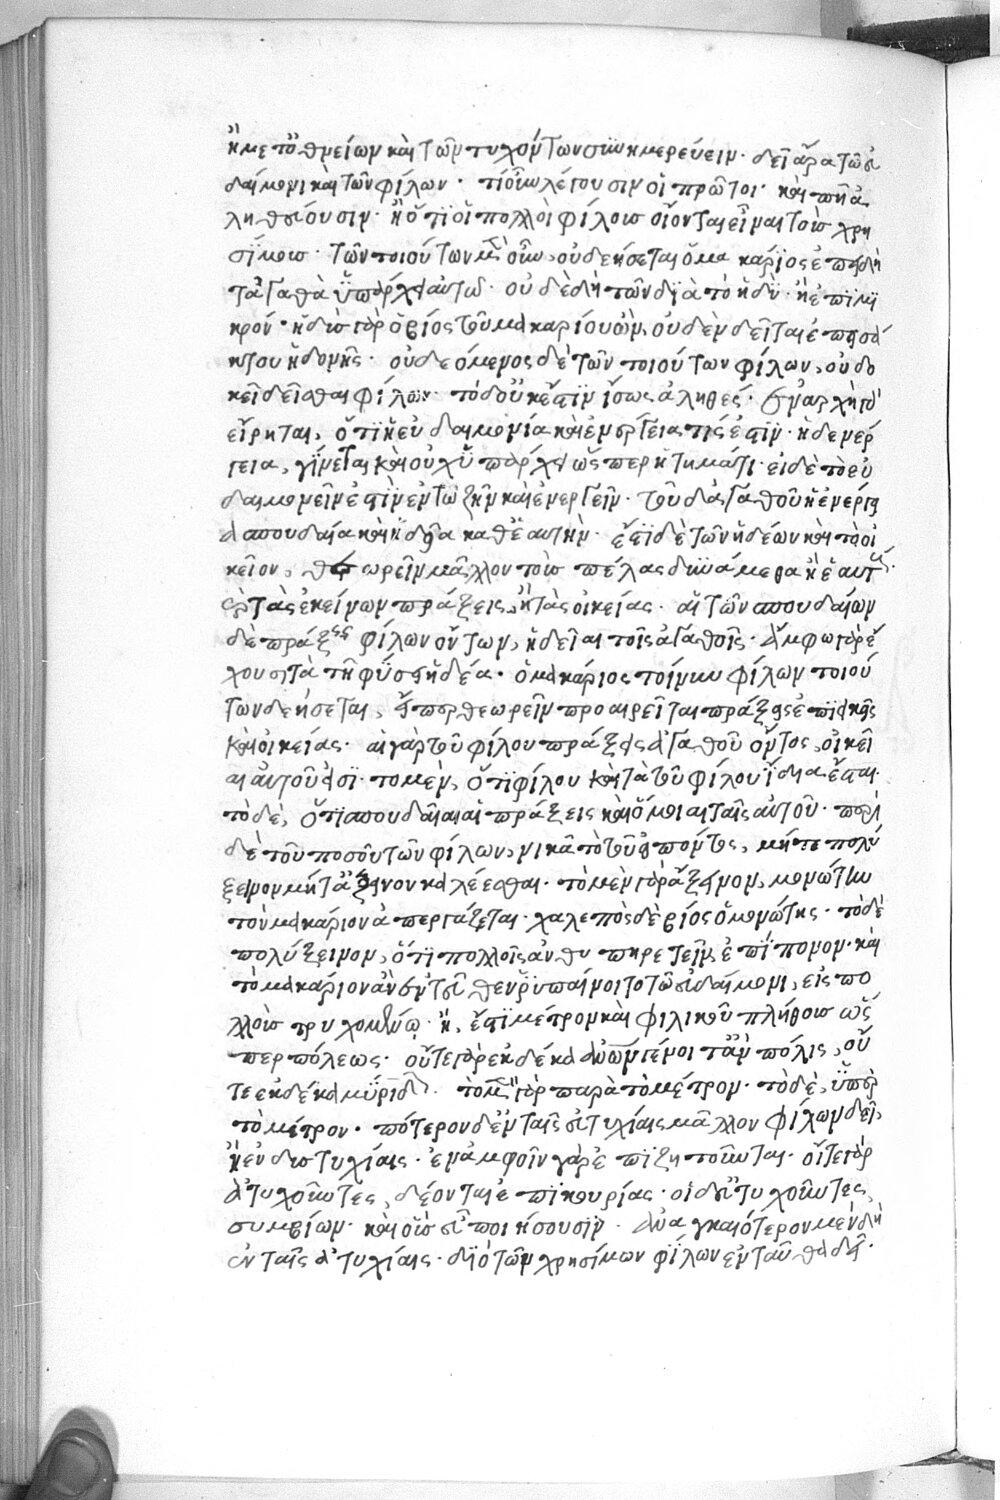 ἢ μετ' ὀθνείων καὶ τῶν τυχόντων συνημερεύειν. δεῖ ἄρα τῷ εὐ
δαίμονι καὶ τῶν φίλων. τί οὖν λέγουσιν οἱ πρῶτοι. καὶ πῇ ἀ
ληθεύουσιν. ἢ ὅτι οἱ πολλοὶ φίλους οἴονται εἶναι τοὺς χρη
σίμους. τῶν τοιούτων μὲν οὖν, οὐ δεήσεται ὁ μακάριος ἐπειδὴ
τἀγαθὰ ὑπάρχει αὐτῷ. οὐδὲ δὴ τῶν διὰ τὸ ἡδὺ. ἢ ἐπὶ μι
κρόν. ἡδὺς γὰρ ὁ βίος τοῦ μακαρίου ὢν, οὐδὲν δεῖται ἐπεισά
κτου ἡδονῆς. οὐ δεόμενος δὲ τῶν τοιούτων φίλων, οὐ δο
κεῖ δεῖσθαι φίλων. τὸ δ' οὐκ ἔστιν ἴσως ἀληθές. ἐν ἀρχῇ γὰρ
εἴρηται, ὅτι ἡ εὐδαιμονία καὶ ἐνέργεια τίς ἐστιν. ἡ δ' ἐνέρ
γεια, γίνεται καὶ οὐχ ὑπάρχει ὥσπερ κτῆμά τι. εἰ δὲ τὸ εὐ
δαιμονεῖν ἐστὶν ἐν τῷ ζῆν καὶ ἐνεργεῖν. τοῦ δ' ἀγαθοῦ ἡ ἐνέργεια
σπουδαία καὶ ἡδεῖα καθ' ἑαυτὴν. ἔστι δὲ τῶν ἡδέων καὶ τὸ οἰ
κεῖον, θεωρεῖν μᾶλλον τοὺς πέλας δυνάμεθα ἢ ἑαυτούς.
καὶ τὰς ἐκείνων πράξεις, ἢ τὰς οἰκείας. αἱ τῶν σπουδαίων
δὲ πράξεις φίλων ὄντων, ἡδεῖαι τοῖς ἀγαθοῖς. ἄμφω γὰρ ἔ
χουσι τὰ τῇ φύσει ἡδέα. ὁ μακάριος τοίνυν φίλων τοιού
των δεήσεται, εἴπερ θεωρεῖν προαιρεῖται πράξεις ἐπιεικεῖς
καὶ οἰκείας. αἱ γὰρ τοῦ φίλου πράξεις ἀγαθοῦ ὄντος, οἰκεῖ
αι αὐτοῦ εἰσί. τὸ μὲν, ὅτι φίλου καὶ τὰ τοῦ φίλου ἴδια ἔσται.
τὸ δὲ, ὅτι σπουδαῖαι αἱ πράξεις καὶ ὅμοιαι ταῖς αὐτοῦ. περὶ
δὲ τοῦ ποσοῦ τῶν φίλων, νικᾶ τὸ τοῦ εἰπόντος, μήτε πολύ
ξεινον μήτ' ἄξεινον καλέεσθαι. τὸ μὲν γὰρ ἄξεινον, μονώτην
τὸν μακάριον ἀπεργάζεται. χαλεπὸς δὲ βίος ὁ μονώτης. τὸ δὲ
πολύξεινον, ὅτι πολλοῖς ἀνθυπηρετεῖν, ἐπίπονον. καὶ
τὸ μακάριον ἂν ἐντεῦθεν ῥυπαίνοιτο τῷ εὐδαίμονι, εἰς πο
λλοὺς τρυχομένῳ. ἢ, ἔστι μέτρον καὶ φιλικοῦ πλήθους ὥσ
περ πόλεως. οὔτε γὰρ ἐκ δέκα ἀνθρώπων γένοιτ' ἂν πόλις, οὔ
τε ἐκ δέκα μυριάδων. τὸ μὲν γὰρ παρὰ τὸ μέτρον. τὸ δὲ, ὑπὲρ
τὸ μέτρον. πότερον δ' ἐν ταῖς εὐτυχίαις μᾶλλον φίλων δεῖ,
ἢ ἐν δυστυχίαις. ἐν ἀμφοῖν γὰρ ἐπιζητοῦνται. οἵ τε γὰρ
ἀτυχοῦντες, δέονται ἐπικουρίας. οἱ δ' εὐτυχοῦντες,
συμβίων. καὶ οὓς εὖ ποιήσουσιν. ἀναγκαιότερον μὲν δὴ
ἐν ταῖς ἀτυχίαις. διὸ τῶν χρησίμων φίλων ἐνταῦθα δεῖ.